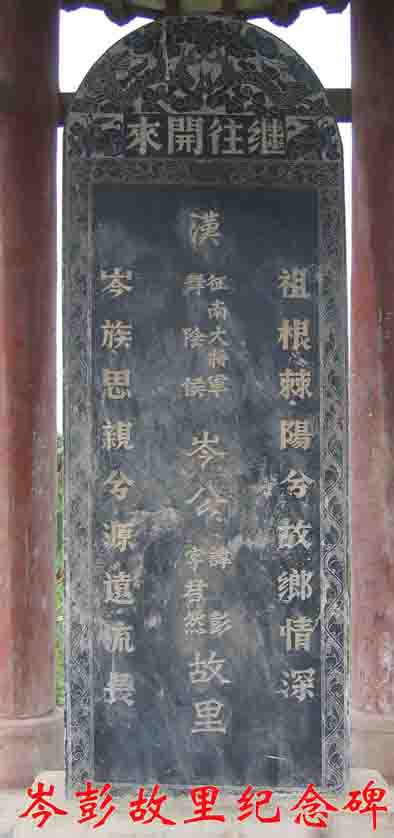 继往開來
祖根棘陽兮故鄉情深
漢
征南大將軍
舞陰侯
岑公
諱彭
字君然
故里
岑族思親兮源遠流長
岑彭故里纪念碑